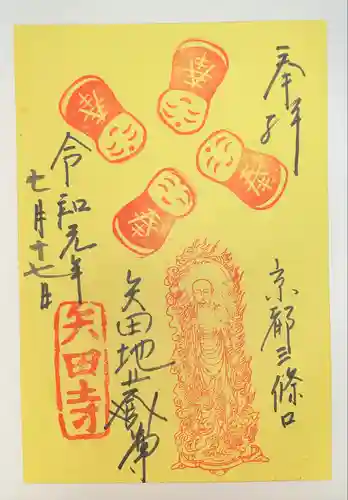 奉拝
京都三條口
矢田地蔵尊
令和元年
七月十七日
矢田寺
奉
奉
奉
奉